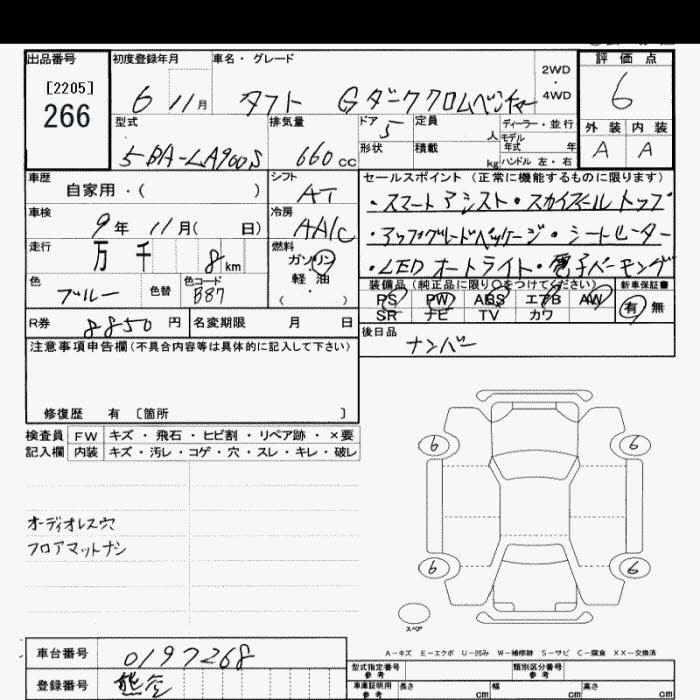 出品番号 初度登録年月 車名・グレード 評価点
[2205]
266
6 11月 タフト Gダーククロムベンチャー 2WD・4WD 6
型式 排気量 ドア 定員 ディーラー・並行 外装 内装
5BA-LA900S 660cc 5 人 モデル年式 年 A A
形状 積載 kg ハンドル 左・右
車歴 シフト セールスポイント (正常に機能するものに限ります)
自家用・( ) AT ・スマートアシスト・スカイフィールトップ
車検 冷房
9年 11月( 日) AAC ・アップグレードパッケージ・シートヒーター
走行 燃料
万 千 8km ガソリン ・LEDオートライト・電子パーキング
軽油
・( )
色 色替 色コード 装備品 (純正品に限り○をつけてください) 新車保証書
ブルー B87 PS PW ABS エアB AW 有 無
SR ナビ TV カワ
R券 8850円 名変期限 月 日 後日品
ナンバー
注意事項申告欄(不具合内容等は具体的に記入して下さい)
修復歴 有 〔箇所 〕
検査員 FW キズ・飛石・ヒビ割・リペア跡・×要
記入欄 内装 キズ・汚レ・コゲ・穴・スレ・キレ・破レ
6 6
オーディオレス穴
フロアマットナシ
6 6
スペア
A-キズ E-エクボ U-凹み W-補修跡 S-サビ C-腐食 XX-交換済
車台番号 0197268
型式指定番号 参考 類別区分番号 参考
登録番号 熊谷
車庫証明用 参考 長さ cm 幅 cm 高さ cm